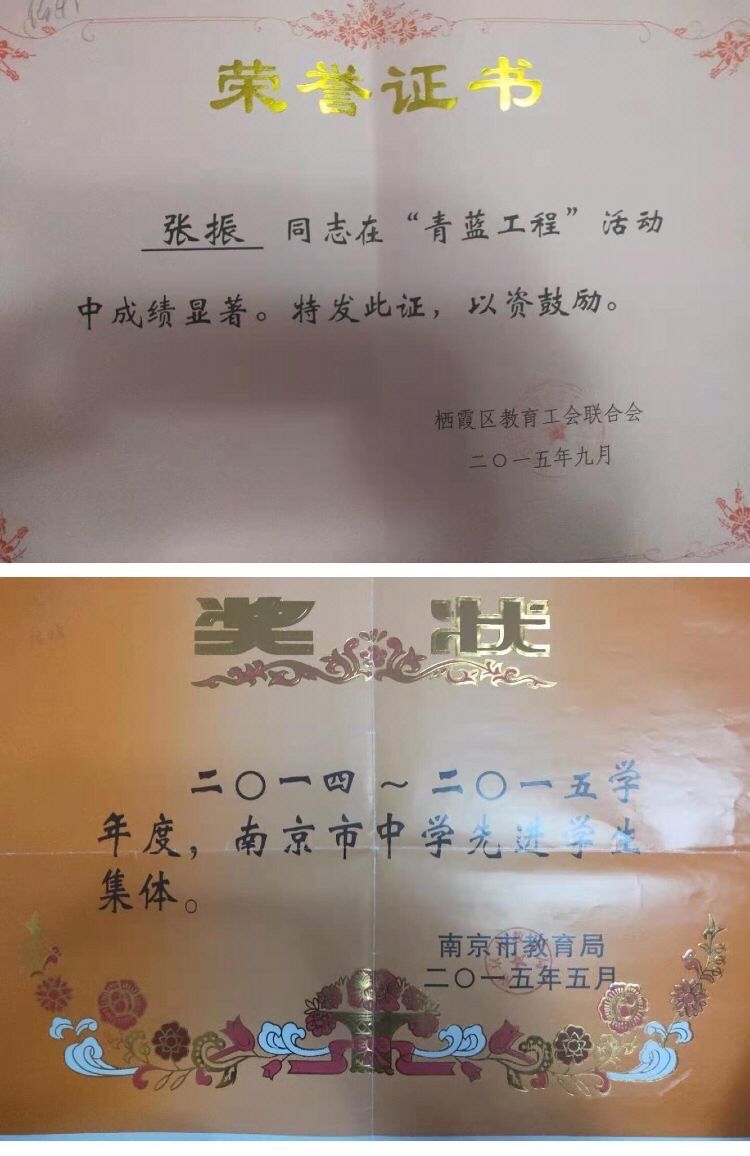 荣誉证书
张振 同志在“青蓝工程”活动
中成绩显著。特发此证，以资鼓励。
栖霞区教育工会联合会
二〇一五年九月
奖 状
二〇一四～二〇一五学
年度，南京市中学先进学生
集体。
南京市教育局
二〇一五年五月